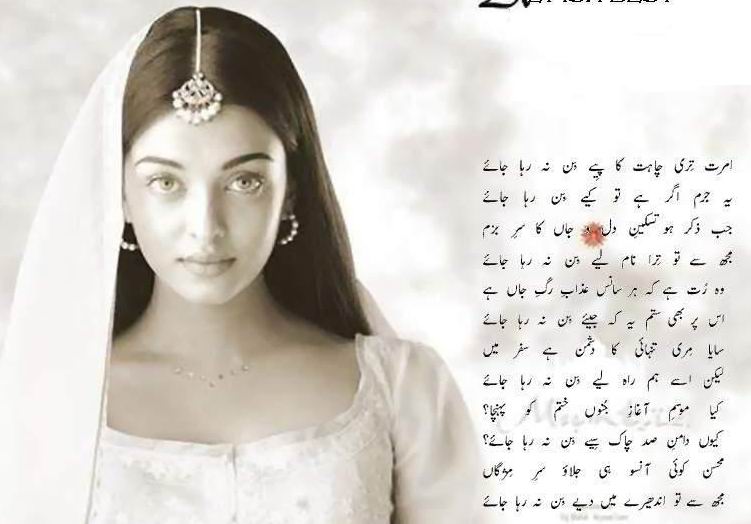 امرت تِری چاہت کا پیے بِن نہ رہا جائے
یہ جرم اگر ہے تو کیے بِن نہ رہا جائے
جب ذکر ہو تسکینِ دل و جاں کا سرِ بزم
مجھ سے تو تِرا نام لیے بِن نہ رہا جائے
وہ رُت ہے کہ ہر سانس عذابِ رگِ جاں ہے
اس پر بھی ستم یہ کہ جیئے بِن نہ رہا جائے
سایا مِری تنہائی کا دشمن ہے سفر میں
لیکن اسے ہم راہ لیے بِن نہ رہا جائے
کیا موسمِ آغازِ جُنوں ختم کو پہنچا؟
کیوں دامنِ صد چاک سیے بِن نہ رہا جائے؟
محسن کوئی آنسو ہی جلاؤ سرِ مژگاں
مجھ سے تو اندھیرے میں دیے بِن نہ رہا جائے